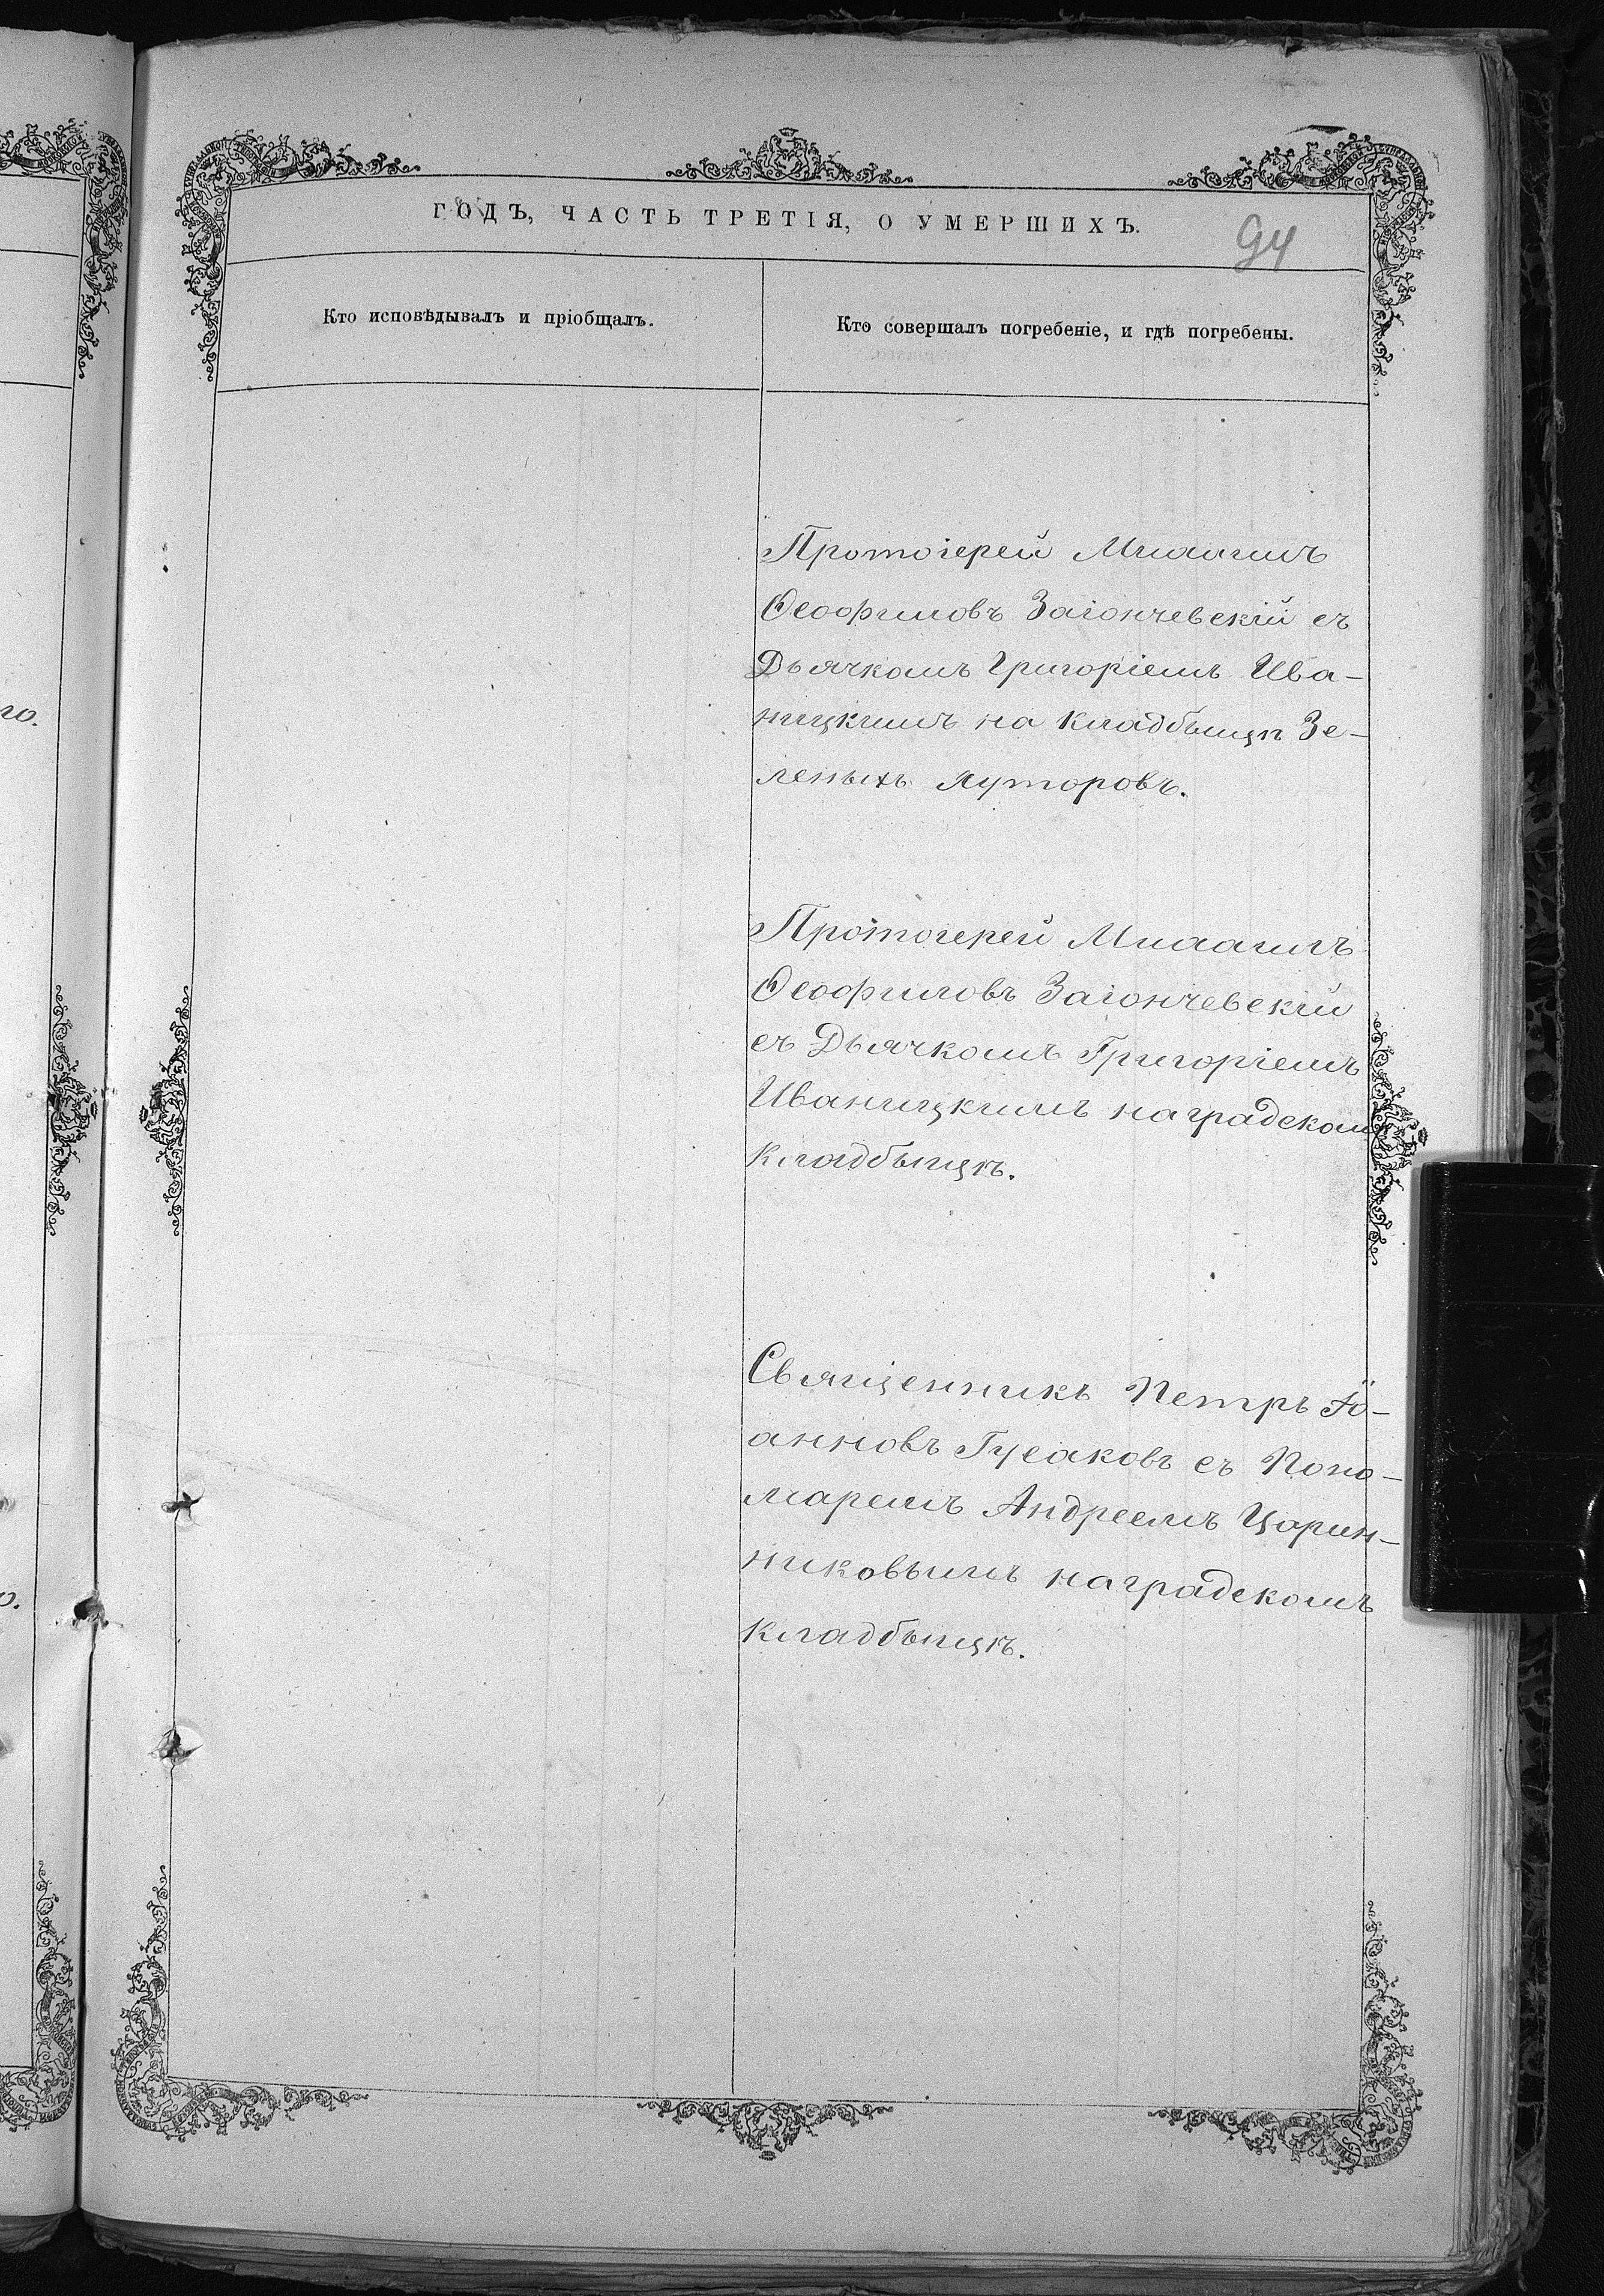 го.
о.
ГОДЪ, ЧАСТЬ ТРЕТІЯ, О УМЕРШИХЪ.
94
Кто исповѣдывалъ и пріобщалъ.
Кто совершалъ погребеніе, и гдѣ погребены.
Протоіерей Михаилъ
Ѳеофиловъ Заіончевскій съ
Дьячкомъ Григоріемъ Ива-
ницкимъ на кладбыщѣ Зе-
леныхъ Хуторовъ.
Протоіерей Михаилъ
Ѳеофиловъ Заіончевскій
съ Дьячкомъ Григоріемъ
Иваницкимъ на градскомъ
кладбыщѣ.
Священникъ Петръ Іо-
анновъ Гусаковъ съ Поно-
маремъ Андреемъ Царин-
никовымъ на градскомъ
кладбыщѣ.